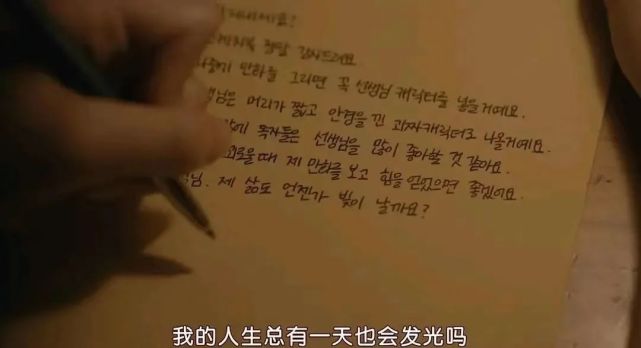 정말 감사드려요
만화를 그리면 꼭 선생님 캐릭터를 넣을거예요.
머리가 짧고 안경을 낀 괴짜캐릭터로 나올거예요.
독자들은 선생님을 많이 좋아할 것 같아요.
때 제 만화를 보고 힘을 얻었으면 좋겠어요.
제 삶도 언젠가 빛이 날까요?
我的人生总有一天也会发光吗